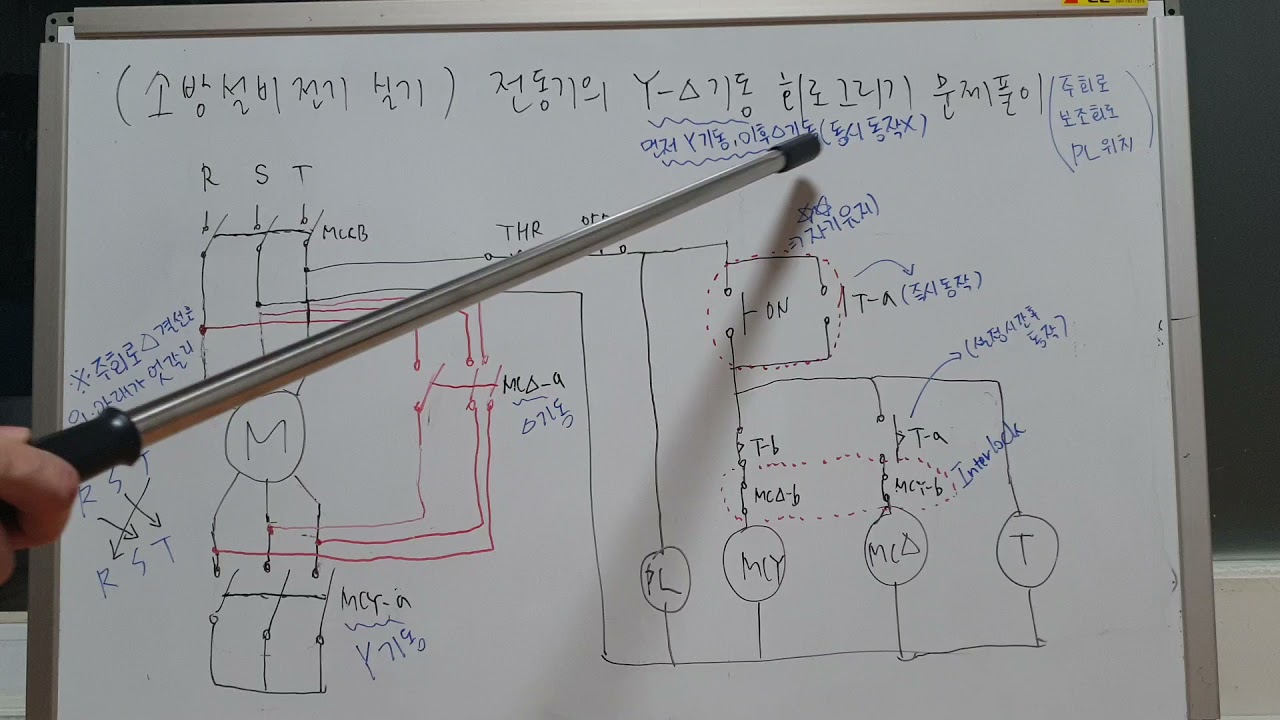 (소방설비전기 실기) 전동기의 Y-△기동 회로그리기 문제풀이
먼저 Y기동, 이후△기동(동시 동작X)
주회로
보조회로
PL위치
R S T
MCCB
THR
자기유지)
ON
T-a (즉시동작)
(설정시간후
동작)
※주회로△결선은
위 아래가 엇갈리
MC△-a
△기동
M
T-b
T-a
Interlock
MC△-b
MCY-b
R S T
R S T
PL
MCY
MC△
T
MCY-a
Y기동